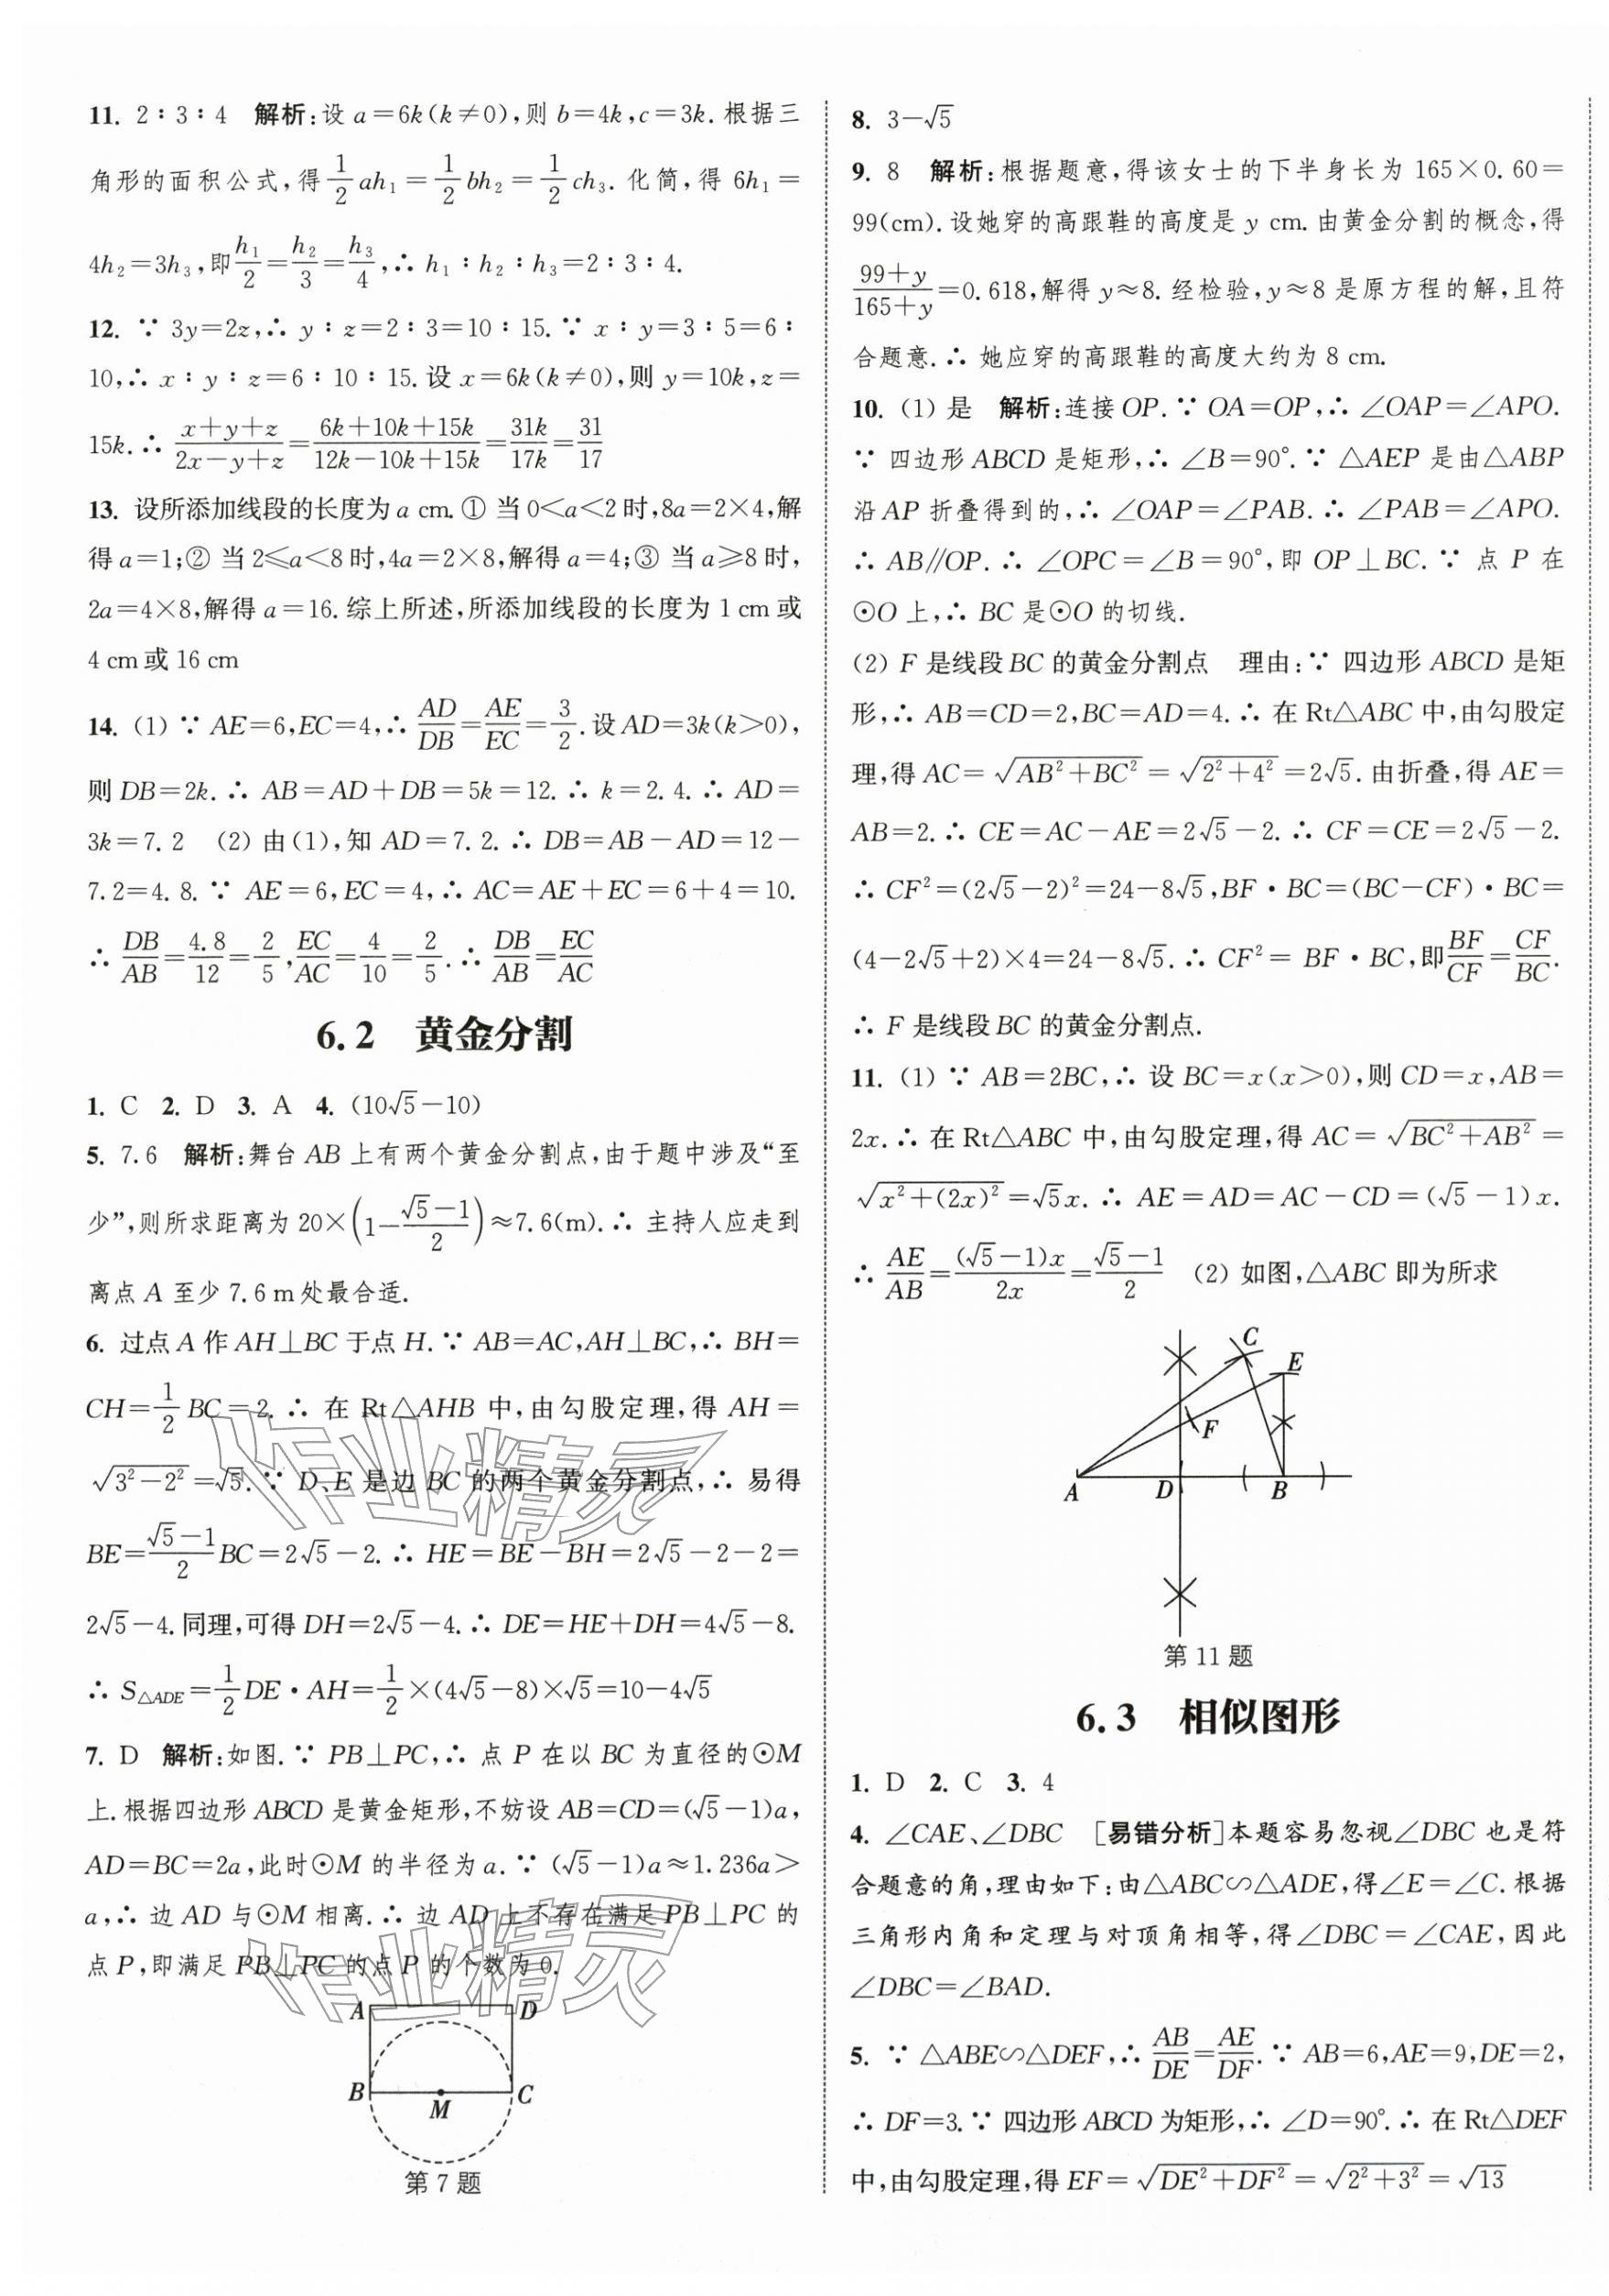 11. 2∶3∶4 解析:设 a=6k(k≠0),则 b=4k,c=3k. 根据三
角形的面积公式,得 1/2 ah₁ = 1/2 bh₂ = 1/2 ch₃. 化简,得 6h₁ =
4h₂=3h₃,即 h₁/2 = h₂/3 = h₃/4,∴ h₁∶h₂∶h₃=2∶3∶4.
12. ∵ 3y=2z,∴ y∶z=2∶3=10∶15. ∵ x∶y=3∶5=6∶
10,∴ x∶y∶z=6∶10∶15. 设 x=6k(k≠0),则 y=10k,z=
15k. ∴ (x+y+z)/(2x-y+z) = (6k+10k+15k)/(12k-10k+15k) = 31k/17k = 31/17
13. 设所添加线段的长度为 a cm. ① 当 0<a<2 时,8a=2×4,解
得 a=1;② 当 2≤a<8 时,4a=2×8,解得 a=4;③ 当 a≥8 时,
2a=4×8,解得 a=16. 综上所述,所添加线段的长度为 1 cm 或
4 cm 或 16 cm
14. (1) ∵ AE=6,EC=4,∴ AD/DB = AE/EC = 3/2. 设 AD=3k(k>0),
则 DB=2k. ∴ AB=AD+DB=5k=12. ∴ k=2.4. ∴ AD=
3k=7.2 (2) 由(1),知 AD=7.2. ∴ DB=AB-AD=12-
7.2=4.8. ∵ AE=6,EC=4,∴ AC=AE+EC=6+4=10.
∴ DB/AB = 4.8/12 = 2/5, EC/AC = 4/10 = 2/5. ∴ DB/AB = EC/AC
6.2 黄金分割
1. C 2. D 3. A 4. (10√5-10)
5. 7.6 解析:舞台 AB 上有两个黄金分割点,由于题中涉及“至
少”,则所求距离为 20×(1-(√5-1)/2)≈7.6(m). ∴ 主持人应走到
离点 A 至少 7.6 m 处最合适.
6. 过点 A 作 AH⊥BC 于点 H. ∵ AB=AC,AH⊥BC,∴ BH=
CH=1/2 BC=2. ∴ 在 Rt△AHB 中,由勾股定理,得 AH=
√(3²-2²)=√5. ∵ D、E 是边 BC 的两个黄金分割点,∴ 易得
BE=(√5-1)/2 BC=2√5-2. ∴ HE=BE-BH=2√5-2-2=
2√5-4. 同理,可得 DH=2√5-4. ∴ DE=HE+DH=4√5-8.
∴ S△ADE=1/2 DE·AH=1/2×(4√5-8)×√5=10-4√5
7. D 解析:如图. ∵ PB⊥PC,∴ 点 P 在以 BC 为直径的⊙M
上. 根据四边形 ABCD 是黄金矩形,不妨设 AB=CD=(√5-1)a,
AD=BC=2a,此时⊙M 的半径为 a. ∵ (√5-1)a≈1.236a>
a,∴ 边 AD 与⊙M 相离. ∴ 边 AD 上不存在满足 PB⊥PC 的
点 P,即满足 PB⊥PC 的点 P 的个数为 0.
A D
B M C
第 7 题
8. 3-√5
9. 8 解析:根据题意,得该女士的下半身长为 165×0.60=
99(cm). 设她穿的高跟鞋的高度是 y cm. 由黄金分割的概念,得
(99+y)/(165+y)=0.618,解得 y≈8. 经检验,y≈8 是原方程的解,且符
合题意. ∴ 她应穿的高跟鞋的高度大约为 8 cm.
10. (1) 是 解析:连接 OP. ∵ OA=OP,∴ ∠OAP=∠APO.
∵ 四边形 ABCD 是矩形,∴ ∠B=90°. ∵ △AEP 是由△ABP
沿 AP 折叠得到的,∴ ∠OAP=∠PAB. ∴ ∠PAB=∠APO.
∴ AB∥OP. ∴ ∠OPC=∠B=90°,即 OP⊥BC. ∵ 点 P 在
⊙O 上,∴ BC 是⊙O 的切线.
(2) F 是线段 BC 的黄金分割点 理由:∵ 四边形 ABCD 是矩
形,∴ AB=CD=2,BC=AD=4. ∴ 在 Rt△ABC 中,由勾股定
理,得 AC=√(AB²+BC²)=√(2²+4²)=2√5. 由折叠,得 AE=
AB=2. ∴ CE=AC-AE=2√5-2. ∴ CF=CE=2√5-2.
∴ CF²=(2√5-2)²=24-8√5,BF·BC=(BC-CF)·BC=
(4-2√5+2)×4=24-8√5. ∴ CF²=BF·BC,即 BF/CF=CF/BC.
∴ F 是线段 BC 的黄金分割点.
11. (1) ∵ AB=2BC,∴ 设 BC=x(x>0),则 CD=x,AB=
2x. ∴ 在 Rt△ABC 中,由勾股定理,得 AC=√(BC²+AB²)=
√(x²+(2x)²)=√5x. ∴ AE=AD=AC-CD=(√5-1)x.
∴ AE/AB=(√5-1)x/2x=(√5-1)/2 (2) 如图,△ABC 即为所求
C
E
F
A D B
第 11 题
6.3 相似图形
1. D 2. C 3. 4
4. ∠CAE、∠DBC [易错分析]本题容易忽视∠DBC 也是符
合题意的角,理由如下:由△ABC∽△ADE,得∠E=∠C. 根据
三角形内角和定理与对顶角相等,得∠DBC=∠CAE,因此
∠DBC=∠BAD.
5. ∵ △ABE∽△DEF,∴ AB/DE=AE/DF. ∵ AB=6,AE=9,DE=2,
∴ DF=3. ∵ 四边形 ABCD 为矩形,∴ ∠D=90°. ∴ 在 Rt△DEF
中,由勾股定理,得 EF=√(DE²+DF²)=√(2²+3²)=√13
作业精灵
作业精灵